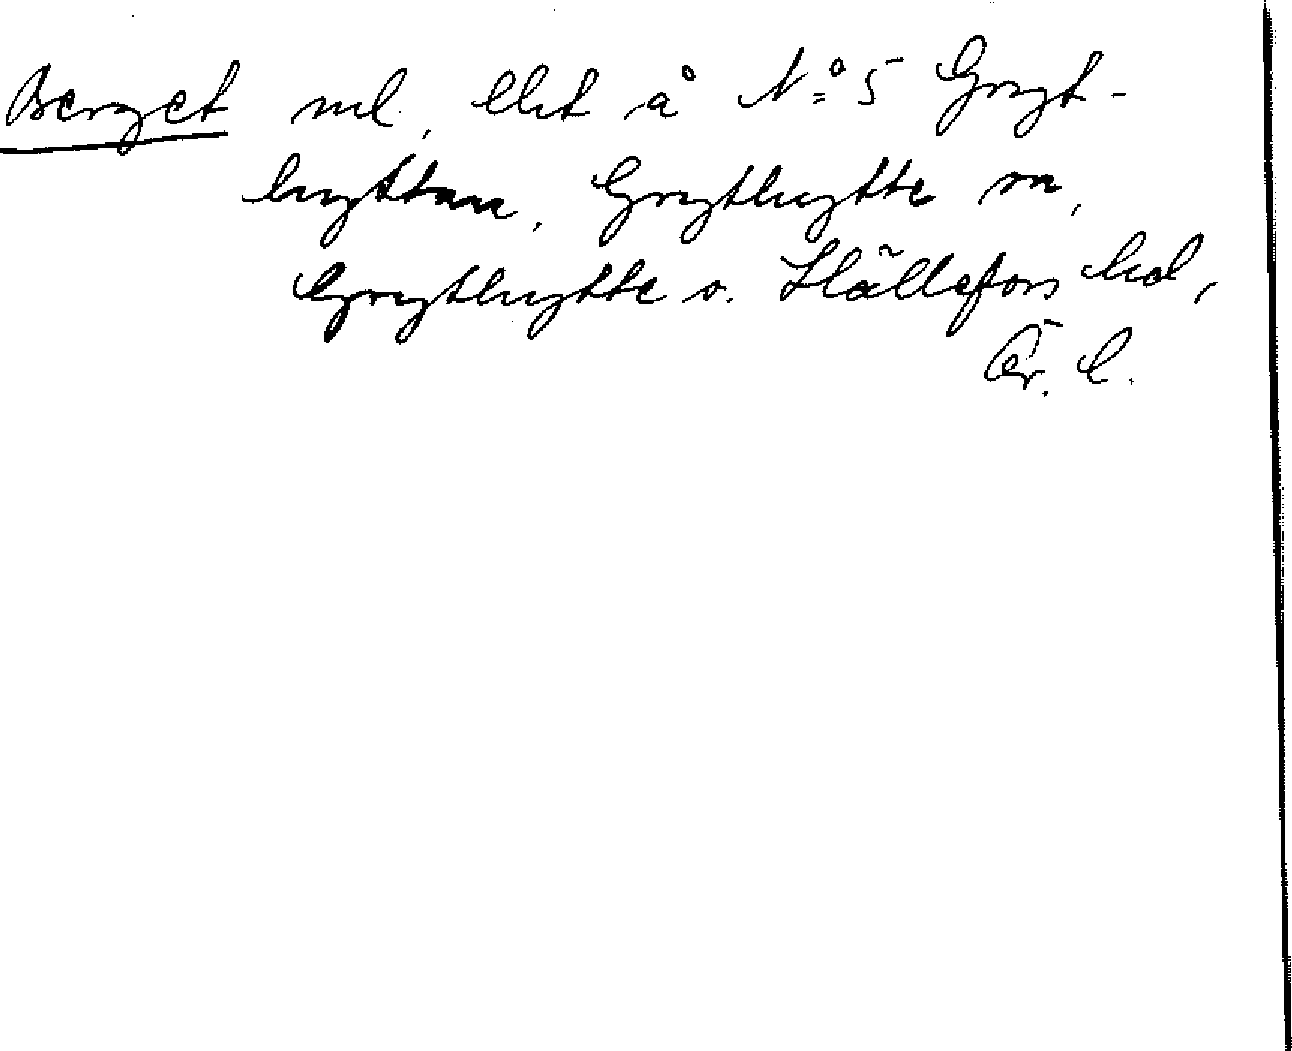 Berget ml, lht å N:o 5 Gryt-
hyttan, Grythytte sn,
Grythytte o. Hällefors hd,
Ör. l.